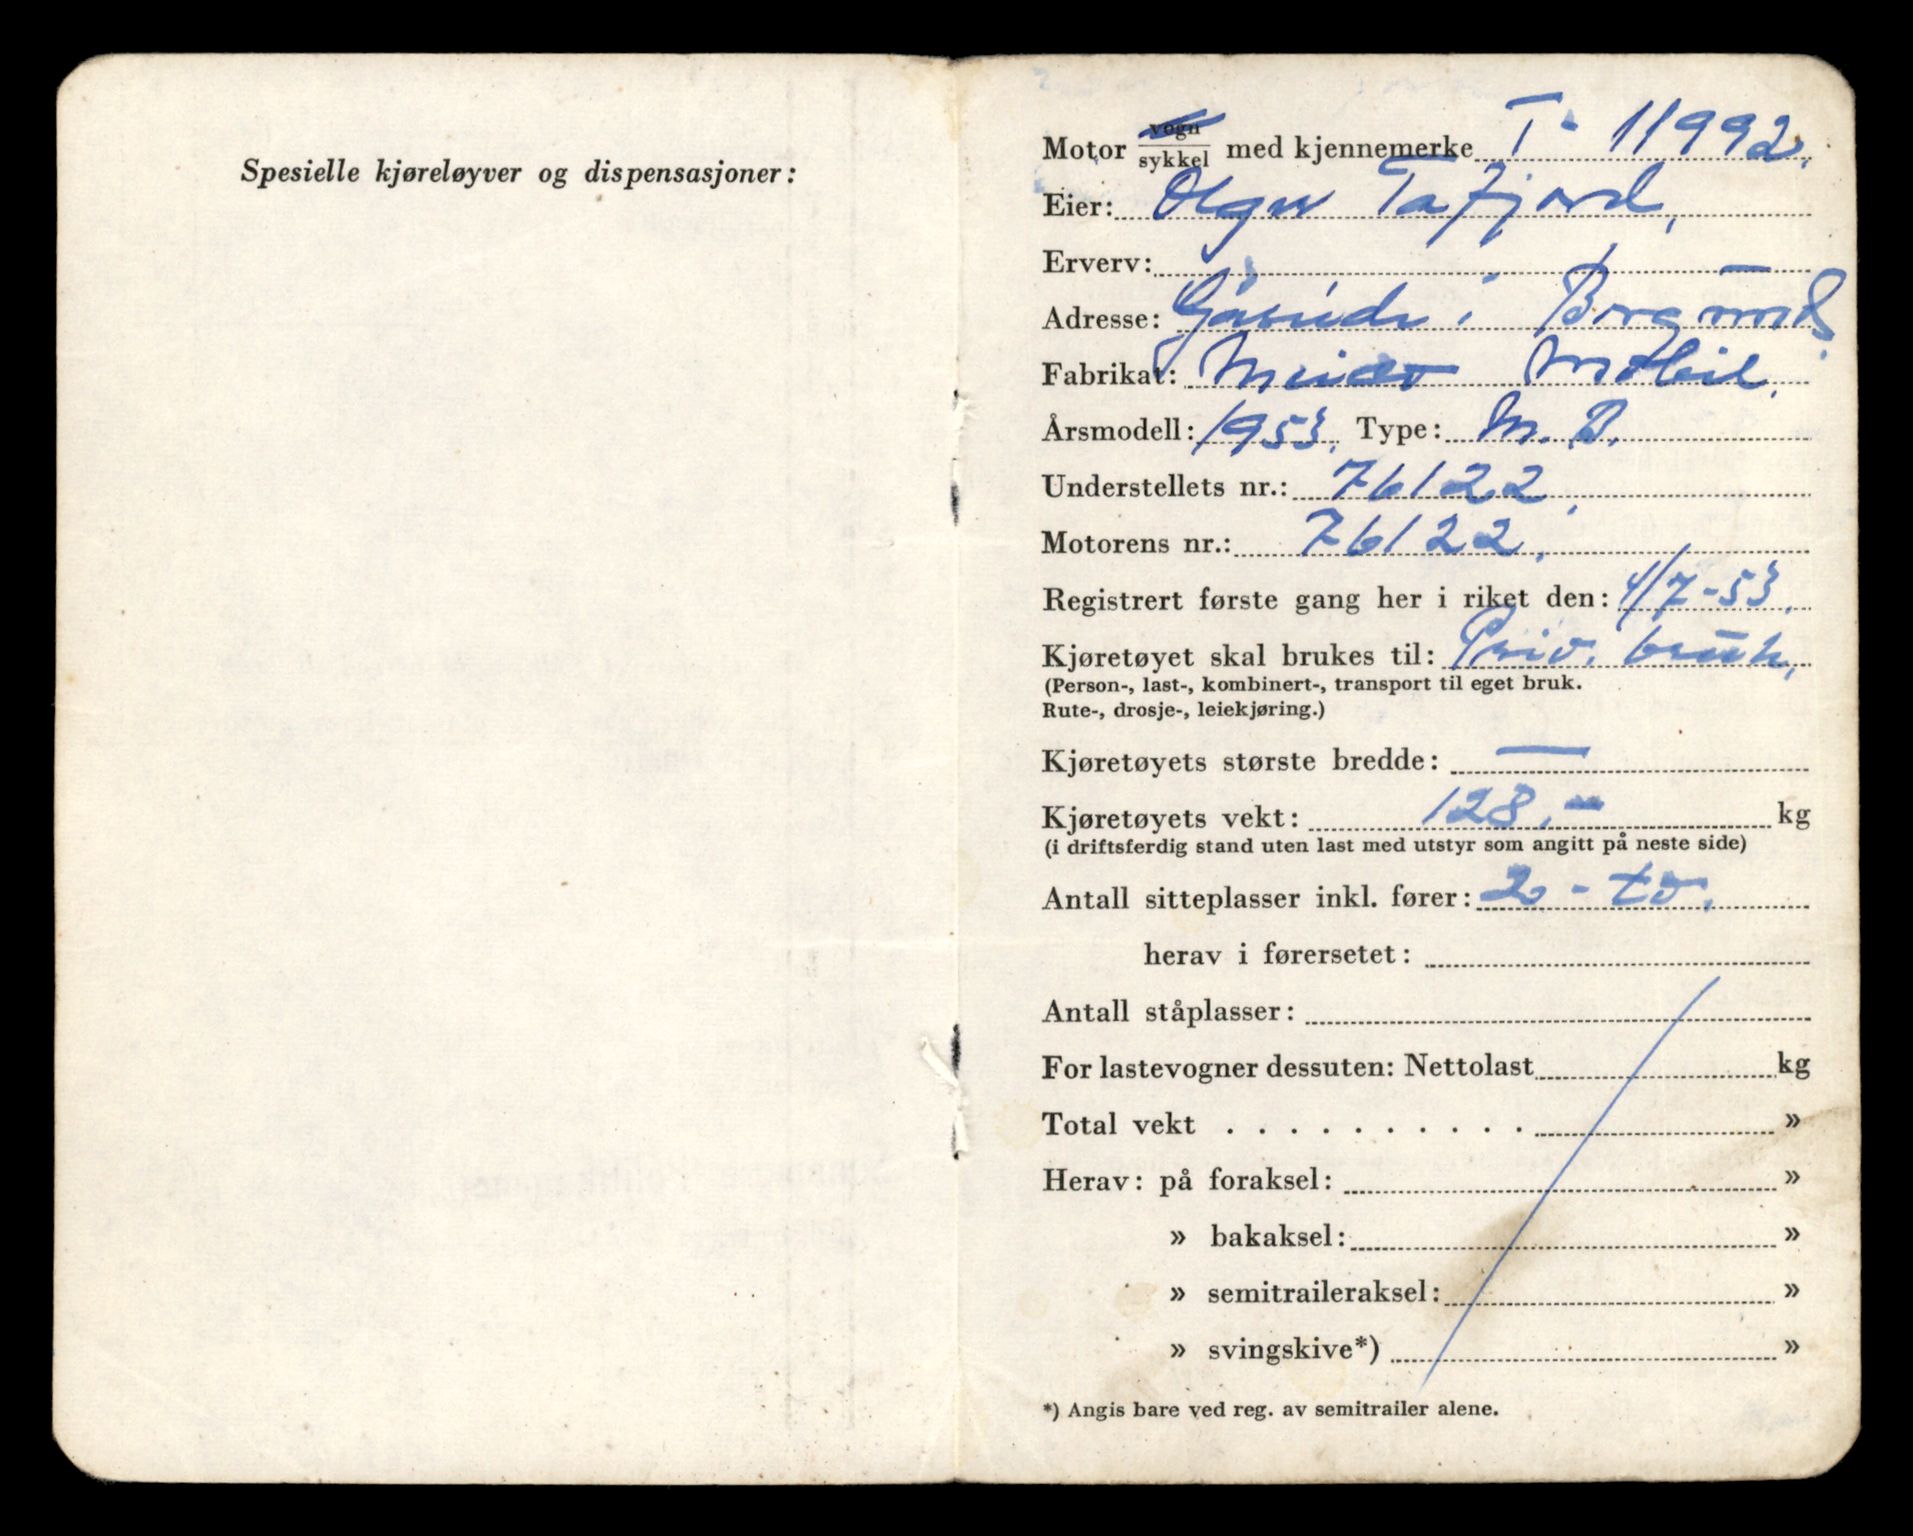 Spesielle kjøreløyver og dispensasjoner:
Motor vogn/sykkel med kjennemerke T- 11992.
Eier: Olga Tafjord,
Erverv:
Adresse: Gåseide i Borgund
Fabrikat: Mobil.
Årsmodell: 1953. Type: M. B.
Understellets nr.: 76122.
Motorens nr.: 76122.
Registrert første gang her i riket den: 4/7-53.
Kjøretøyet skal brukes til: Priv. bruk,
(Person-, last-, kombinert-, transport til eget bruk.
Rute-, drosje-, leiekjøring.)
Kjøretøyets største bredde: —
Kjøretøyets vekt: 128,- kg
(i driftsferdig stand uten last med utstyr som angitt på neste side)
Antall sitteplasser inkl. fører: 2 - to.
herav i førersetet:
Antall ståplasser:
For lastevogner dessuten: Nettolast kg
Total vekt . . . . . . . . . . »
Herav: på foraksel: »
» bakaksel: »
» semitraileraksel: »
» svingskive*) »
*) Angis bare ved reg. av semitrailer alene.